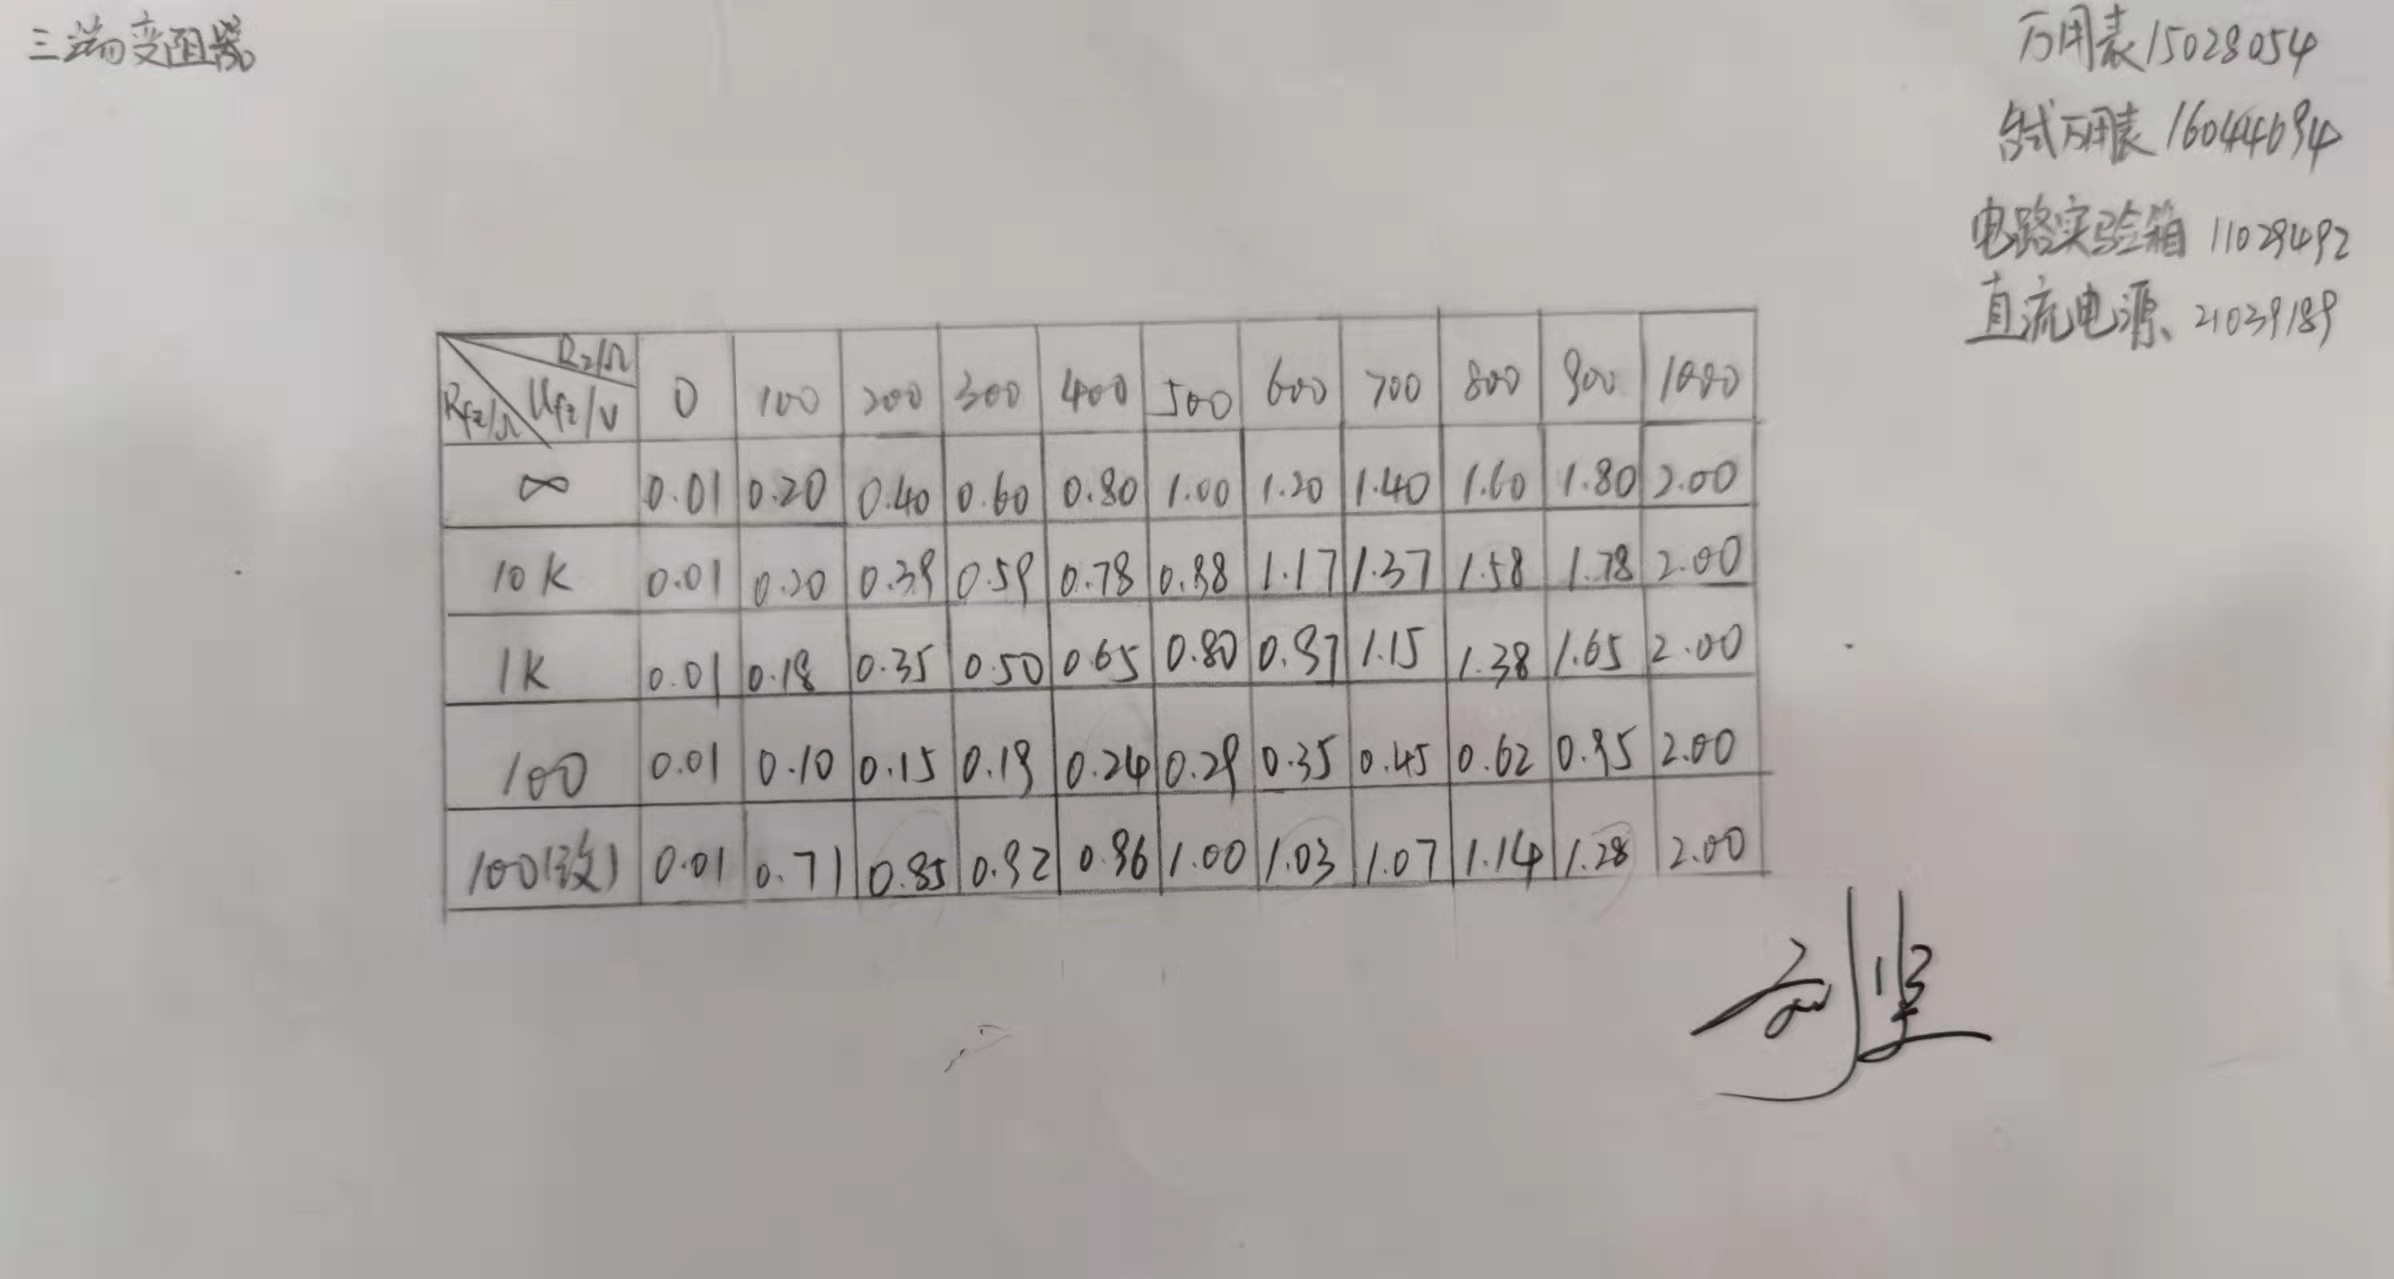 三端变阻器
万用表15028054
台式万用表16044694
电路实验箱 11029492
直流电源、21039189
R₂/Ω
Rfz/Ω Ufz/V 0 100 200 300 400 500 600 700 800 900 1000
∞ 0.01 0.20 0.40 0.60 0.80 1.00 1.20 1.40 1.60 1.80 2.00
10K 0.01 0.20 0.39 0.59 0.78 0.98 1.17 1.37 1.58 1.78 2.00
1K 0.01 0.18 0.35 0.50 0.65 0.80 0.97 1.15 1.38 1.65 2.00
100 0.01 0.10 0.15 0.19 0.24 0.29 0.35 0.45 0.62 0.95 2.00
100(改) 0.01 0.71 0.85 0.92 0.96 1.00 1.03 1.07 1.14 1.28 2.00